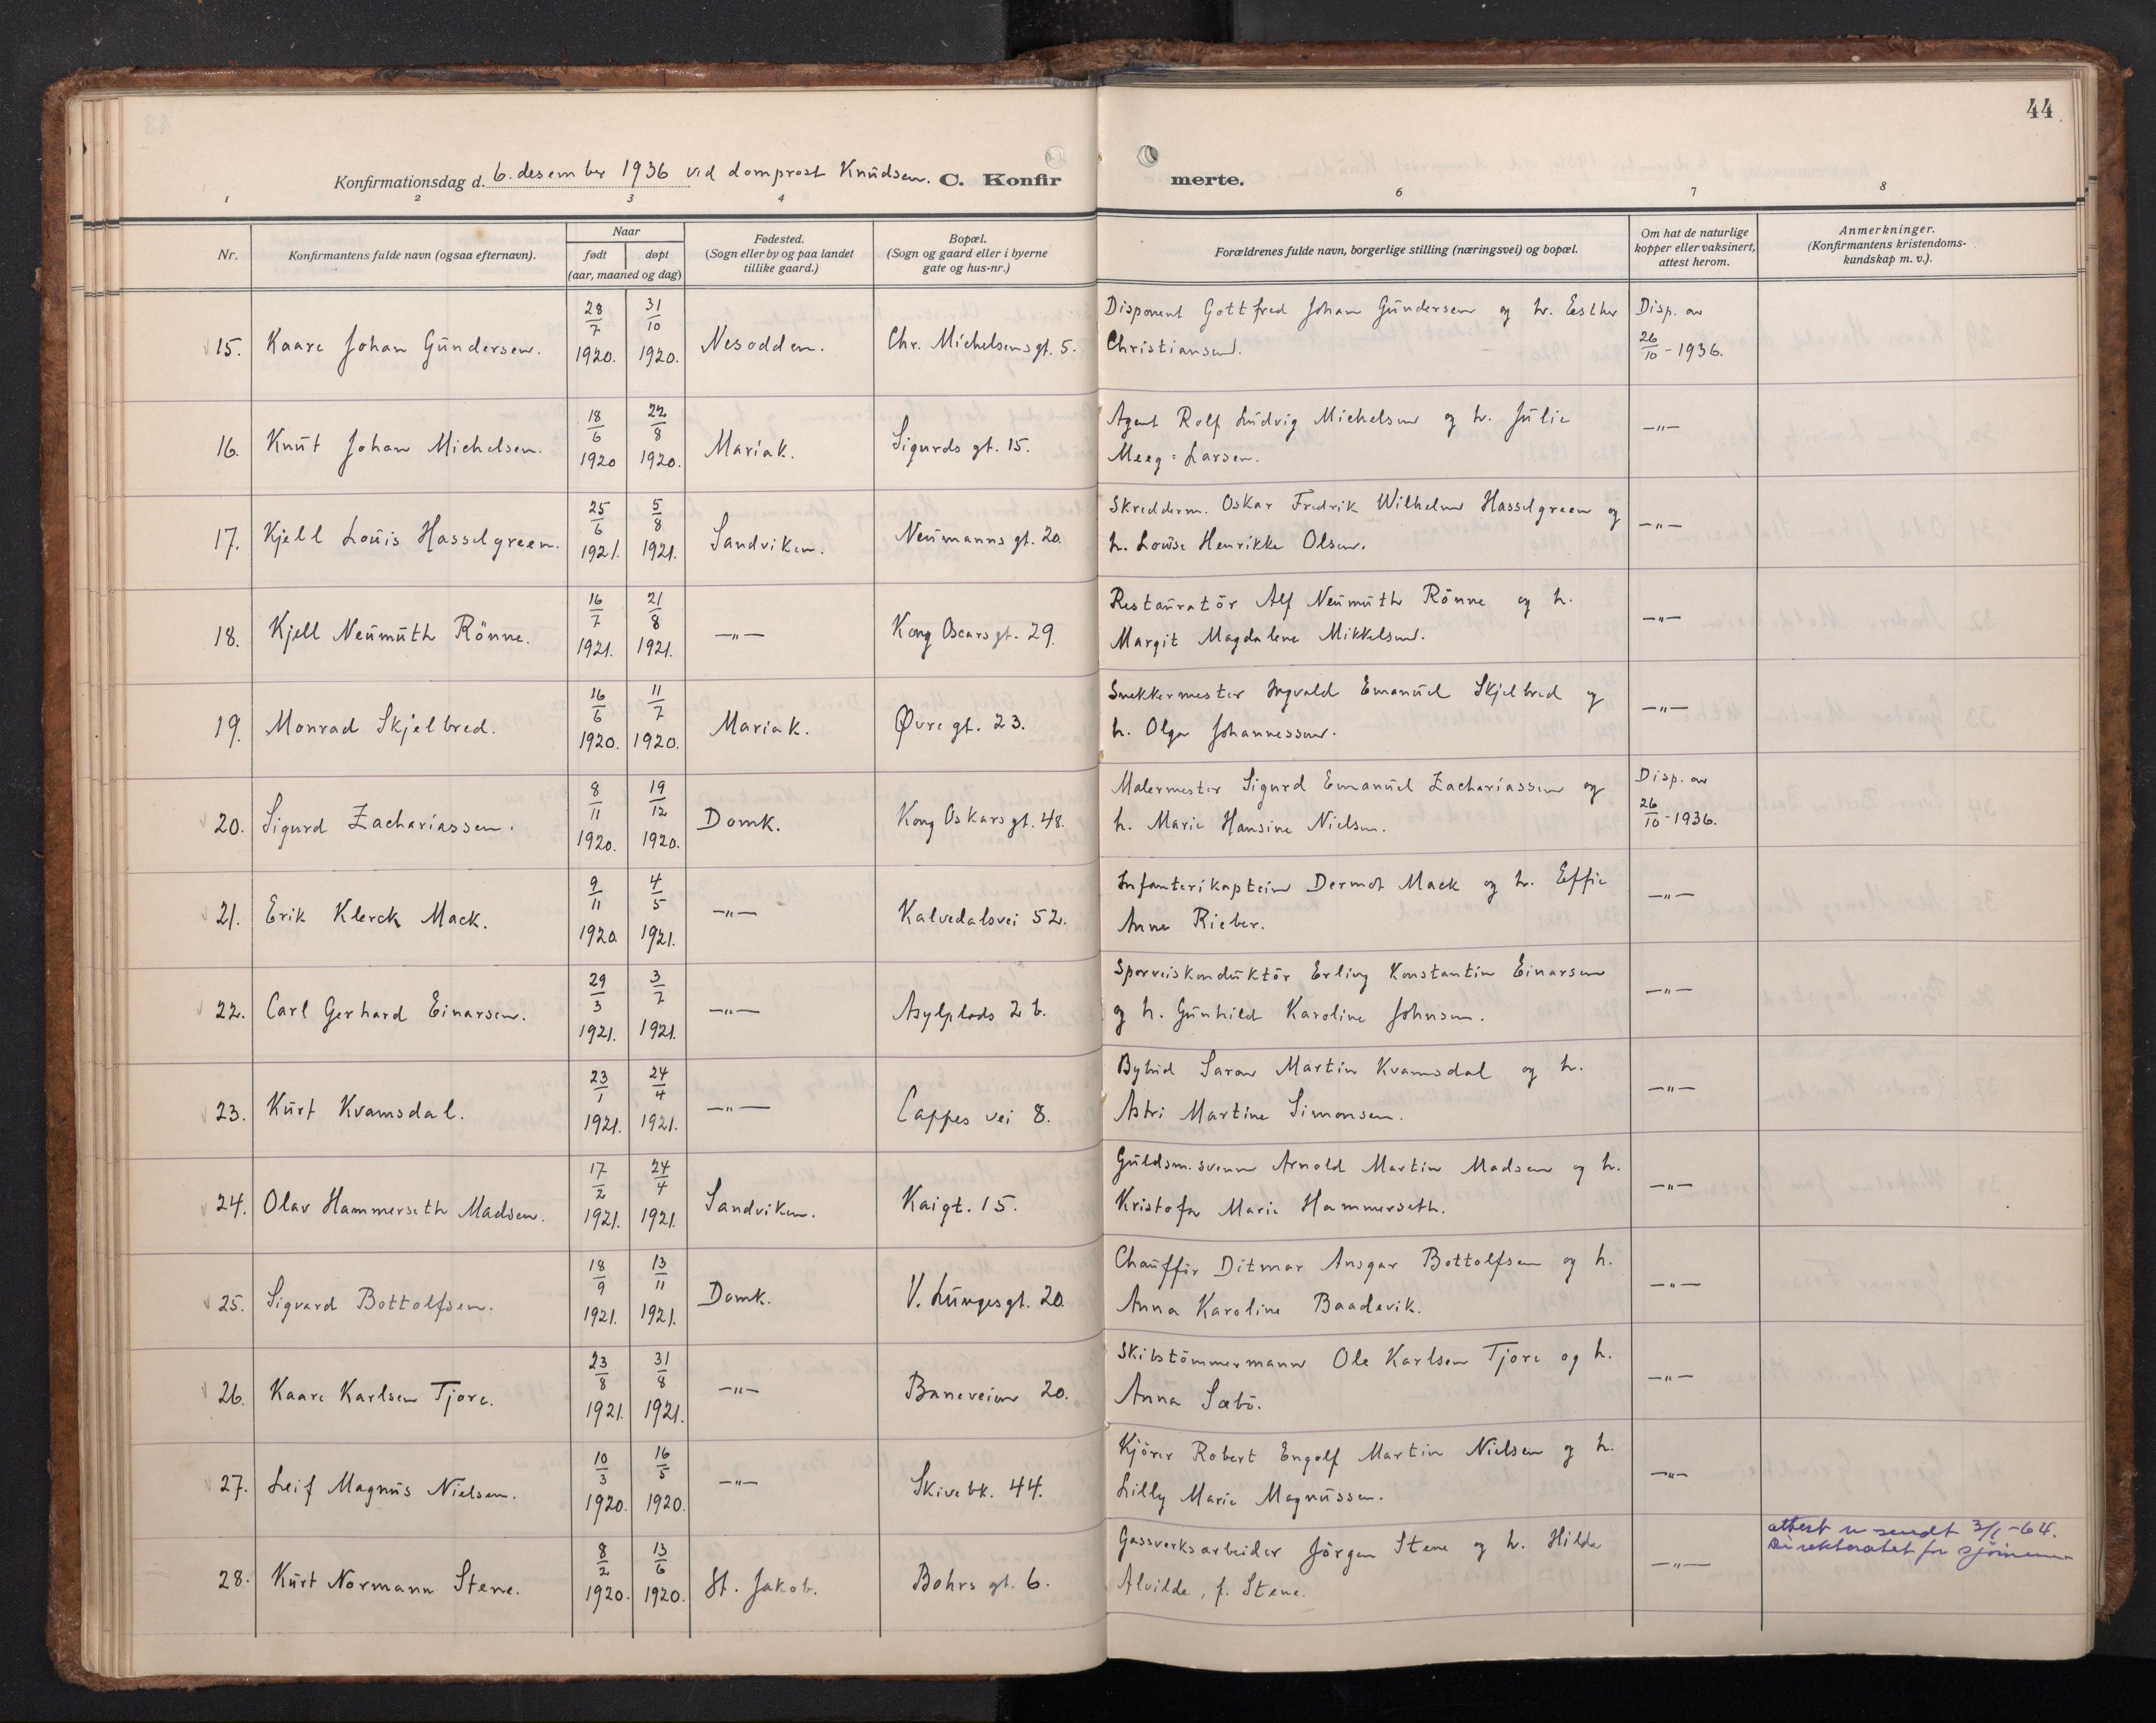 44
Konfirmationsdag d. 6. desember 1936 ved domprost Knudsen. C. Konfirmerte.
1 2 3 4 6 7 8
Nr.
Konfirmantens fulde navn (ogsaa efternavn).
Naar
født døpt
(aar, maaned og dag)
Fødested.
(Sogn eller by og paa landet
tillike gaard.)
Bopæl.
(Sogn og gaard eller i byerne
gate og hus-nr.)
Forældrenes fulde navn, borgerlige stilling (næringsvei) og bopæl.
Om hat de naturlige
kopper eller vaksinert,
attest herom.
Anmerkninger.
(Konfirmantens kristendoms-
kundskap m. v.).
15. Kaare Johan Gundersen. 28/7 1920. 31/10 1920. Nesodden. Chr. Michelsens gt. 5. Disponent Gottfred Johan Gundersen og h. Esther
Christiansen. Disp. av
26/10 - 1936.
16. Knut Johan Michelsen. 18/6 1920 22/8 1920. Mariak. Sigurds gt. 15. Agent Rolf Ludvig Michelsen og h. Julie
Meeg-Larsen. —"—
17. Kjell Louis Hasselgreen. 25/6 1921. 5/8 1921. Sandviken. Neumanns gt. 20. Skredderm. Oskar Fredrik Wilhelm Hasselgreen og
h. Louise Henrikke Olsen. —"—
18. Kjell Neumuth Rönne. 16/7 1921. 21/8 1921. —"— Kong Oscars gt. 29. Restauratör Alf Neumuth Rönne og h.
Margit Magdalene Mikkelsen. —"—
19. Monrad Skjelbred. 16/6 1920. 11/7 1920. Mariak. Øvre gt. 23. Snekkermester Ingvald Emanuel Skjelbred og
h. Olga Johannessen. —"—
20. Sigurd Zachariassen. 8/11 1920. 19/12 1920. Domk. Kong Oskars gt. 48. Malermester Sigurd Emanuel Zachariassen og
h. Marie Hansine Nielsen. Disp. av
26/10 - 1936.
21. Erik Klerck Mack. 9/11 1920 4/5 1921. —"— Kalvedalsvei 52. Infanterikaptein Dermot Mack og h. Effie
Anne Rieber. —"—
22. Carl Gerhard Einarsen. 29/3 1921. 3/7 1921. —"— Asylplads 2 b. Sporveiskonduktör Erling Konstantin Einarsen
og h. Gunhild Karoline Johnsen. —"—
23. Kurt Kvamsdal. 23/1 1921. 24/4 1921. —"— Cappes vei 8. Bybud Saron Martin Kvamsdal og h.
Astri Martine Simonsen. —"—
24. Olav Hammerseth Madsen. 17/2 1921. 24/4 1921. Sandviken. Kaigt. 15. Guldsm.svenn Arnold Martin Madsen og h.
Kristofa Marie Hammerseth. —"—
25. Sigvard Bottolfsen. 18/9 1921. 13/11 1921. Domk. V. Lungesgt. 20. Chaufför Ditmar Ansgar Bottolfsen og h.
Anna Karoline Baadevik. —"—
26. Kaare Karlsen Tjore. 23/8 1921. 31/8 1921. —"— Baneveien 20. Skibstömmermann Ole Karlsen Tjore og h.
Anna Sæbö. —"—
27. Leif Magnus Nielsen. 10/3 1920. 16/5 1920. —"— Skivebk. 44. Kjörer Robert Engolf Martin Nielsen og h.
Lilly Marie Magnussen. —"—
28. Kurt Normann Stene. 8/2 1920. 13/6 1920. St. Jakob. Bohrs gt. 6. Gassverksarbeider Jörgen Stene og h. Hilda
Alvilde, f. Stene. —"— attest u sendt 3/1-64.
Direktoratet for sjömenn